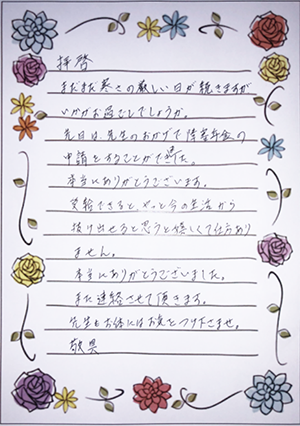 拝啓
まだまだ寒さの厳しい日が続きますが
いかがお過ごしでしょうか。
先日は、先生のおかげで障害年金の
申請をすることができました。
本当にありがとうございます。
受給できると、やっと今の生活から
抜け出せると思うと嬉しくて仕方あり
ません。
本当にありがとうございました。
また連絡させて頂きます。
先生もお体にはお気をつけ下さませ。
敬具